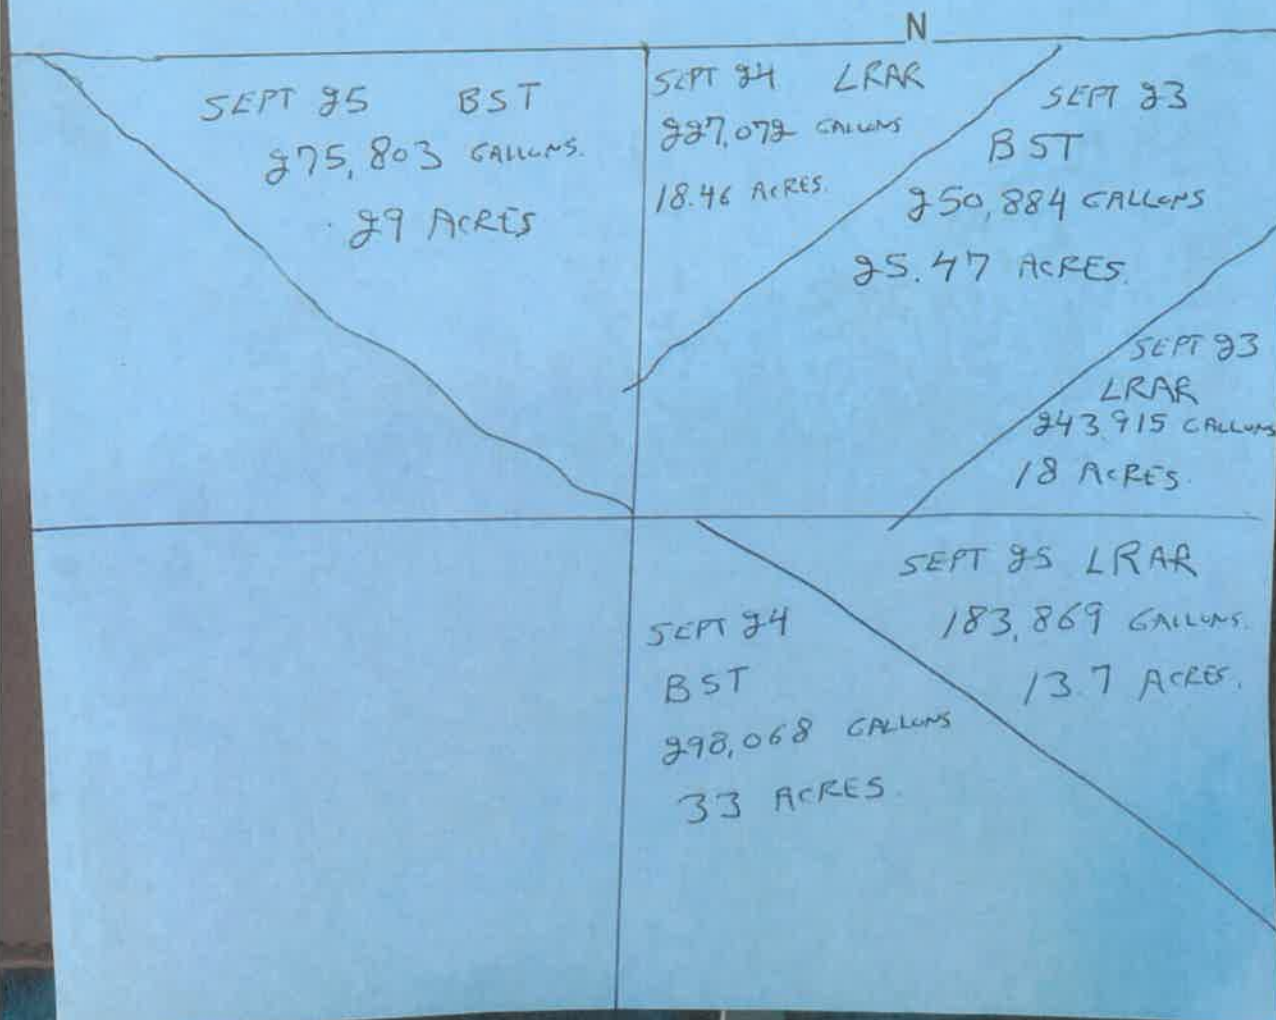 N
SEPT 25 BST
275,803 GALLONS.
29 ACRES
SEPT 24 LRAR
227,072 GALLONS
18.46 ACRES.
SEPT 23
BST
250,884 GALLONS
25.47 ACRES.
SEPT 23
LRAR
243,915 GALLONS
18 ACRES.
SEPT 24
BST
298,068 GALLONS
33 ACRES.
SEPT 25 LRAR
183,869 GALLONS.
13.7 ACRES.